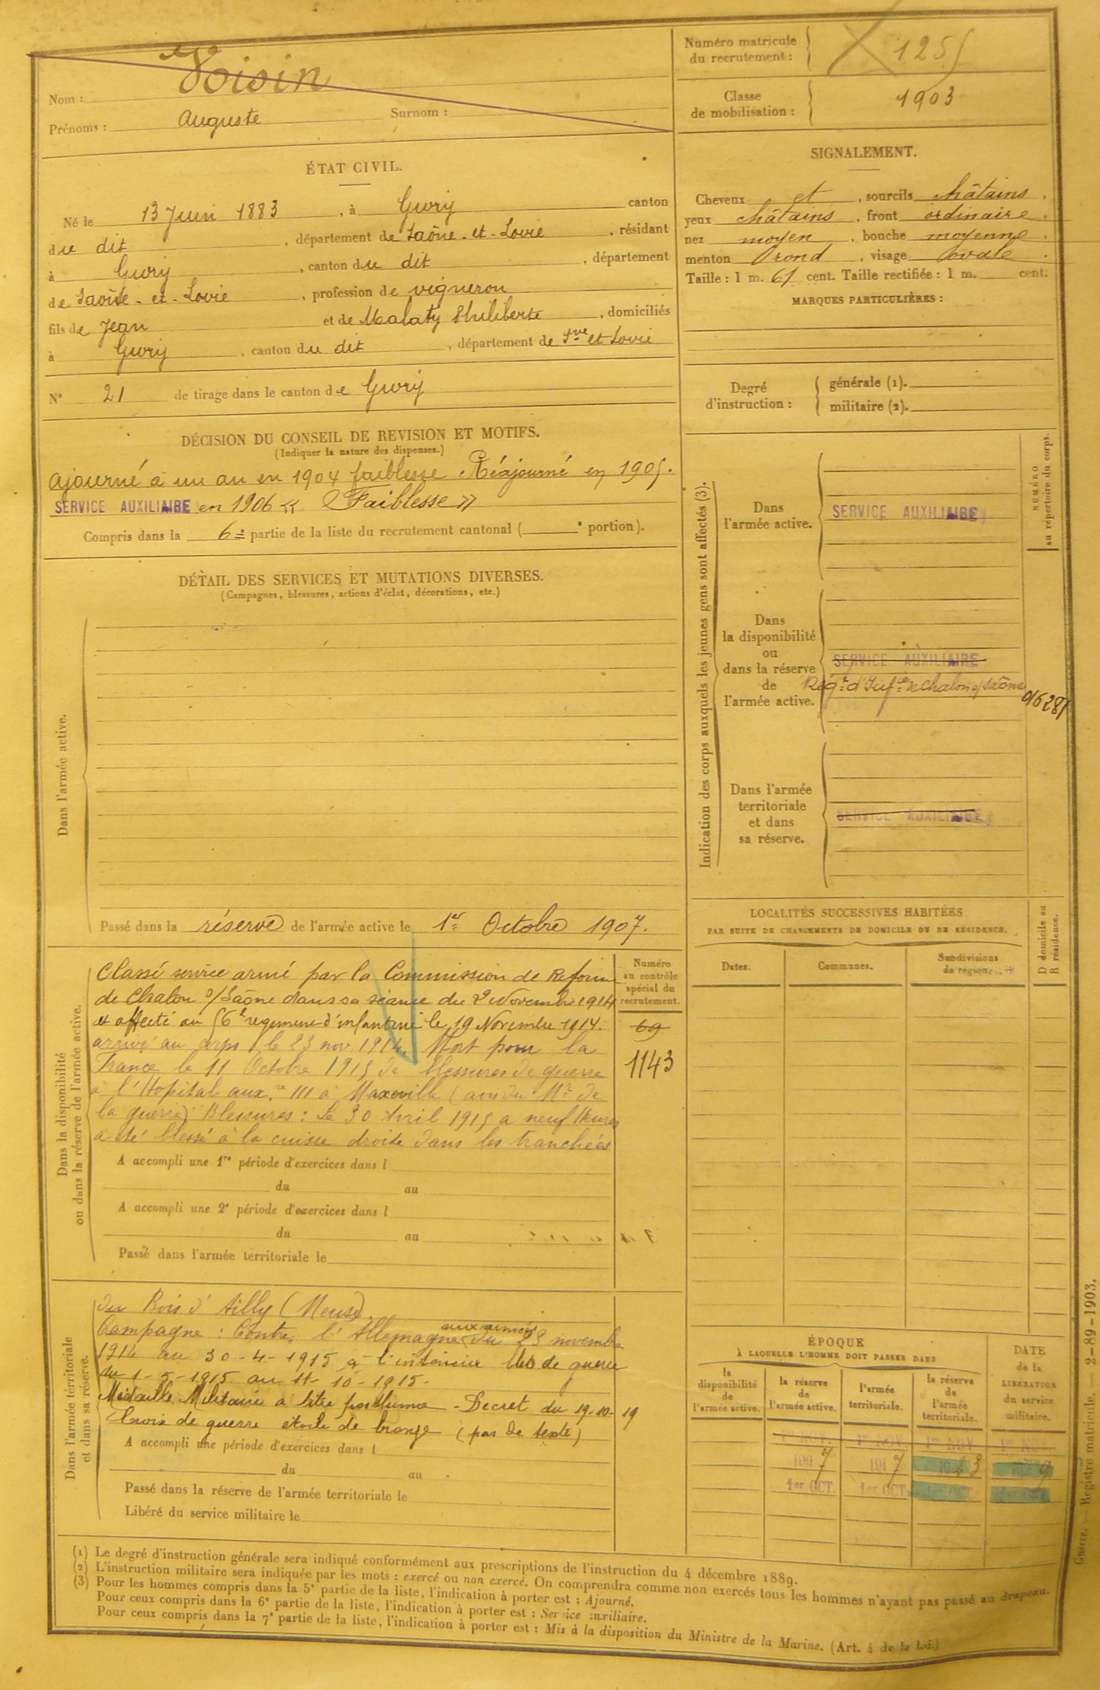 Nom : Voisin
Prénoms : Auguste Surnom :
Numéro matricule du recrutement : 1255
Classe de mobilisation : 1903
ÉTAT CIVIL.
Né le 13 Juin 1883, à Givry canton
du dit, département de Saône-et-Loire, résidant
à Givry, canton du dit, département
de Saône-et-Loire, profession de vigneron
fils de Jean et de Malaty Philiberte, domiciliés
à Givry, canton du dit, département de Sne et Loire
N° 21 de tirage dans le canton de Givry
SIGNALEMENT.
Cheveux et, sourcils châtains,
yeux châtains, front ordinaire,
nez moyen, bouche moyenne,
menton rond, visage ovale.
Taille : 1 m. 61 cent. Taille rectifiée : 1 m. cent.
MARQUES PARTICULIÈRES :
Degré d'instruction : générale (1).
militaire (2).
DÉCISION DU CONSEIL DE REVISION ET MOTIFS.
(Indiquer la nature des dispenses.)
ajourné à un an en 1904 faiblesse Réajourné en 1905.
SERVICE AUXILIAIRE en 1906 « Faiblesse »
Compris dans la 6e partie de la liste du recrutement cantonal ( e portion).
DÉTAIL DES SERVICES ET MUTATIONS DIVERSES.
(Campagnes, blessures, actions d'éclat, décorations, etc.)
Dans l'armée active.
Passé dans la réserve de l'armée active le 1er Octobre 1907.
Indication des corps auxquels les jeunes gens sont affectés (3).
NUMÉRO au répertoire du corps.
Dans l'armée active.
SERVICE AUXILIAIRE
Dans la disponibilité ou dans la réserve de l'armée active.
SERVICE AUXILIAIRE
Régt d'Infie de Chalon s/Saône
Dans l'armée territoriale et dans sa réserve.
SERVICE AUXILIAIRE
LOCALITÉS SUCCESSIVES HABITÉES
PAR SUITE DE CHANGEMENTS DE DOMICILE OU DE RÉSIDENCE.
Dates.
Communes.
Subdivisions de région.
D domicile ou R résidence.
Dans la disponibilité ou dans la réserve de l'armée active.
Numéro au contrôle spécial du recrutement.
69
1143
Classé service armé par la Commission de Réforme
de Chalon s/Saône dans sa séance du 2 Novembre 1914
et affecté au 56e régiment d'infanterie le 19 Novembre 1914.
arrivé au corps le 23 nov 1914. Mort pour la
France le 11 Octobre 1915 de blessures de guerre
à l'Hôpital auxre 111 à Maxeville (avis du Mre de
la guerre) Blessures : le 30 Avril 1915 a neuf heures
a été blessé à la cuisse droite dans les tranchées
A accompli une 1re période d'exercices dans l
du au
A accompli une 2e période d'exercices dans l
du au
Passé dans l'armée territoriale le
Dans l'armée territoriale et dans sa réserve.
du Bois d'Ailly (Meuse)
Campagne : Contre l'Allemagne aux armées du 23 novembre
1914 au 30-4-1915 à l'intérieur blé de guerre
du 1-5-1915 au 11-10-1915.
Médaille Militaire à titre posthume - Décret du 19-10-19
Croix de guerre étoile de bronze (pas de texte)
A accompli une période d'exercices dans l
du au
Passé dans la réserve de l'armée territoriale le
Libéré du service militaire le
ÉPOQUE
À LAQUELLE L'HOMME DOIT PASSER DANS
la disponibilité de l'armée active.
la réserve de l'armée active.
l'armée territoriale.
la réserve de l'armée territoriale.
DATE de la LIBÉRATION du service militaire.
1er NOV. 1er NOV. 1er NOV. 1er NOV.
1907 1917
1er OCT 1er OCT
(1) Le degré d'instruction générale sera indiqué conformément aux prescriptions de l'instruction du 4 décembre 1889.
(2) L'instruction militaire sera indiquée par les mots : exercé ou non exercé. On comprendra comme non exercés tous les hommes n'ayant pas passé au drapeau.
(3) Pour les hommes compris dans la 5e partie de la liste, l'indication à porter est : Ajourné.
Pour ceux compris dans la 6e partie de la liste, l'indication à porter est : Service auxiliaire.
Pour ceux compris dans la 7e partie de la liste, l'indication à porter est : Mis à la disposition du Ministre de la Marine. (Art. 4 de la loi.)
Guerre. — Registre matricule. — 2-89-1903.